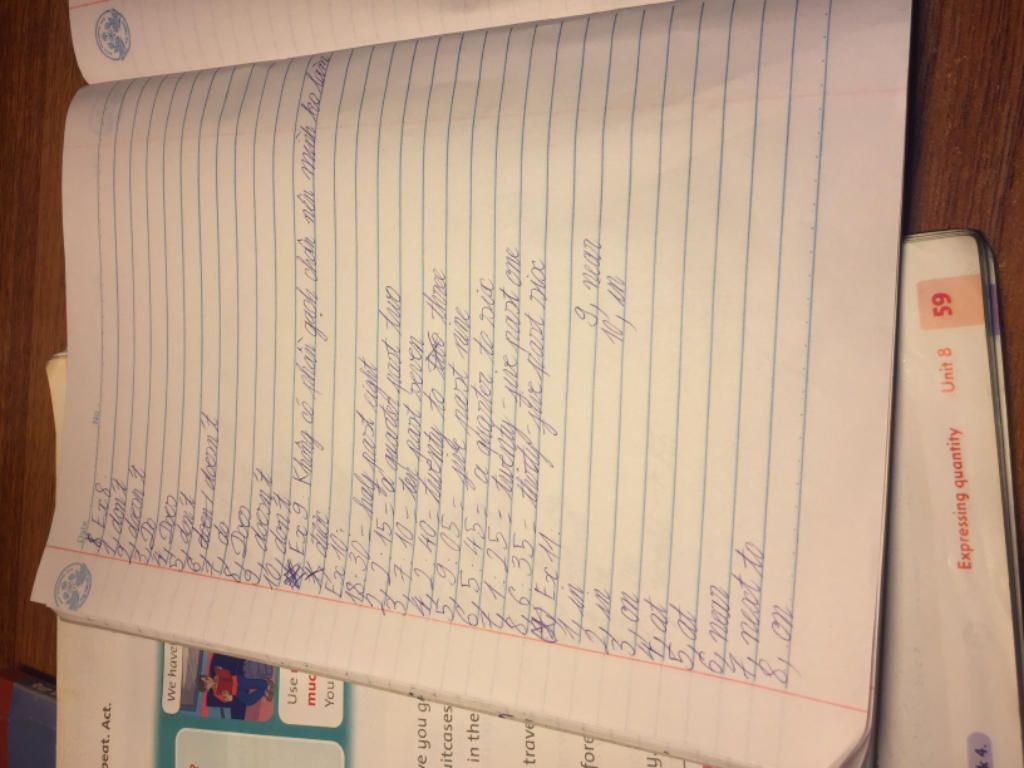 Ex 8
1, don't
2, doesn't
3, Do
4, Does
5, don't
6, doesn't
7, do
8, Does
9, doesn't
10, don't
* Ex 9 Không có phần gạch chân nên mình ko làm
Ex 10:
1, 8:30 - half past eight
2, 2:15 - a quarter past two
3, 7:10 - ten past seven
4, 2:40 - twenty to three
5, 9:05 - five past nine
6, 5:45 = a quarter to six
7, 1:25 = twenty-five past one
8, 6:35 - thirty-five past six
Ex 11
1, in
2, in
3, on
4, at
5, at
6, near
7, next to
8, on
9, near
10, in
peat. Act.
We have
Use
muc
You
ve you g
uitcases
in the
trave
fore
y,
k 4.
Expressing quantity Unit 8 59